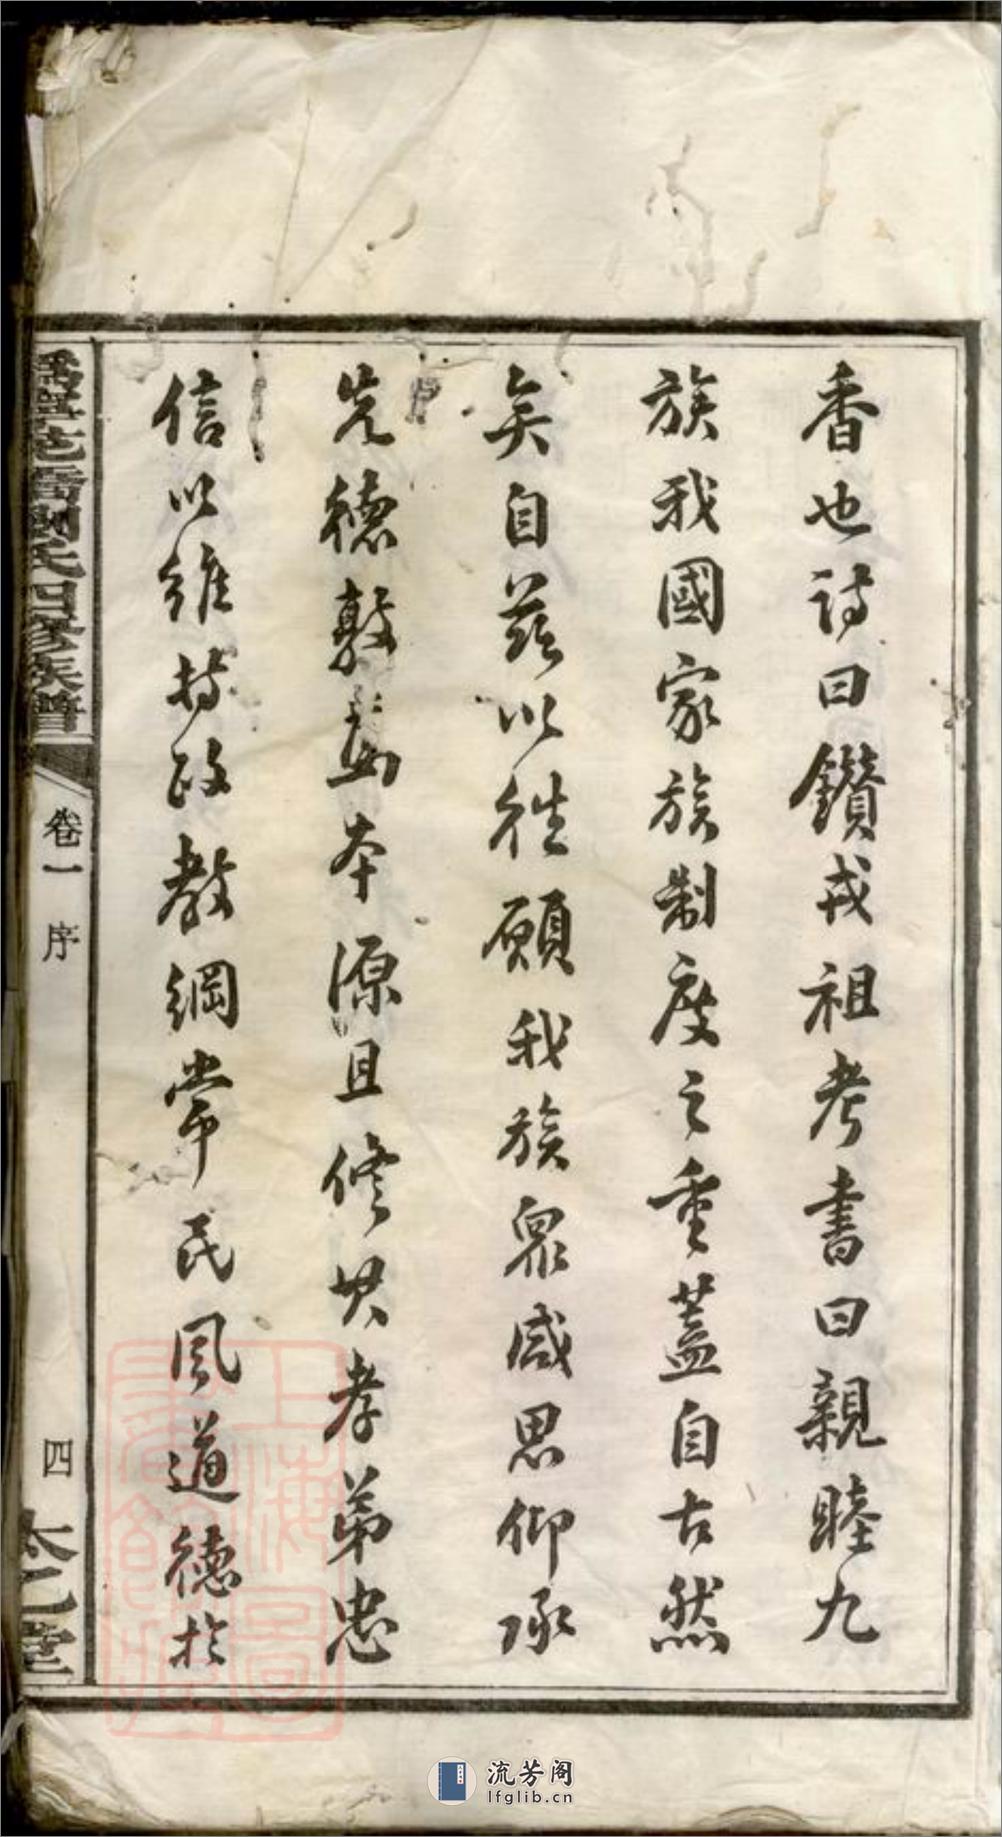 香也詩曰鑽戎祖考書曰親睦九
族我國家族制度之重蓋自古然
矣自茲以往願我族衆咸思仰承
先德敦崇本源且修其孝弟忠
信以維持政教綱常民風道德於
劉氏四修族譜
卷一 序
四
太乙堂
上海圖書館藏
流芳阁
lfglib.cn